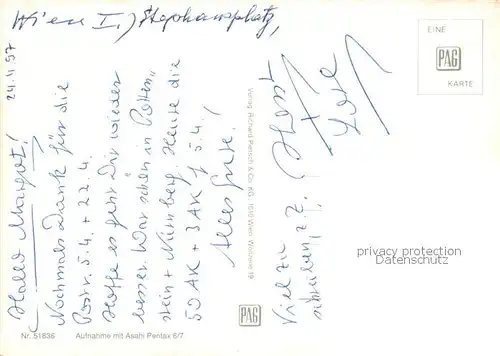 Wien I., Stephansplatz,
24.11.97
Hallo Margot!
Nochmals Dank für die
Postr. 5.4. + 22.4.
Hoffe es geht Dir wieder
besser. War schön in
stein + Nürnberg. Heute die
50 AK + 3 AK f 5.4.
Alles Gute!
Horst
+
Viel zu
schreiben z.Z.
EINE
PAG
KARTE
Verlag Richard Pietsch & Co. KG, 1010 Wien, Wollzeile 19
privacy protection
www.oldthing.de
PAG
Nr. 51836 Aufnahme mit Asahi Pentax 6/7